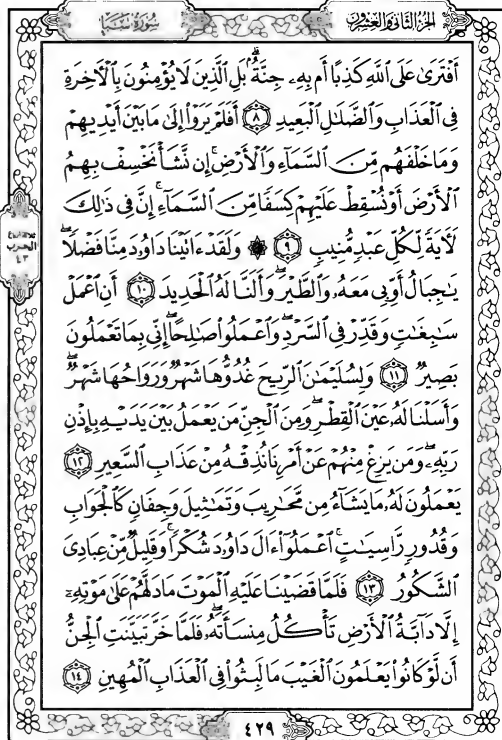 الجزء الثاني والعشرون
سورة سبأ
أَفْتَرَىٰ عَلَى اللَّهِ كَذِبًا أَم بِهِۦ جِنَّةٌۢ ۗ بَلِ الَّذِينَ لَا يُؤْمِنُونَ بِالْآخِرَةِ
فِي الْعَذَابِ وَالضَّلَٰلِ الْبَعِيدِ ٨ أَفَلَمْ يَرَوْا۟ إِلَىٰ مَا بَيْنَ أَيْدِيهِمْ
وَمَا خَلْفَهُم مِّنَ السَّمَآءِ وَالْأَرْضِ ۚ إِن نَّشَأْ نَخْسِفْ بِهِمُ
الْأَرْضَ أَوْ نُسْقِطْ عَلَيْهِمْ كِسَفًا مِّنَ السَّمَآءِ ۚ إِنَّ فِي ذَٰلِكَ
لَآيَةً لِّكُلِّ عَبْدٍ مُّنِيبٍ ٩ ۞ وَلَقَدْ ءَاتَيْنَا دَاوُۥدَ مِنَّا فَضْلًا ۖ
يَٰجِبَالُ أَوِّبِي مَعَهُۥ وَالطَّيْرَ ۖ وَأَلَنَّا لَهُ الْحَدِيدَ ١٠ أَنِ اعْمَلْ
سَٰبِغَٰتٍ وَقَدِّرْ فِي السَّرْدِ ۖ وَاعْمَلُوا۟ صَٰلِحًا ۖ إِنِّي بِمَا تَعْمَلُونَ
بَصِيرٌ ١١ وَلِسُلَيْمَٰنَ الرِّيحَ غُدُوُّهَا شَهْرٌ وَرَوَاحُهَا شَهْرٌ ۖ
وَأَسَلْنَا لَهُۥ عَيْنَ الْقِطْرِ ۖ وَمِنَ الْجِنِّ مَن يَعْمَلُ بَيْنَ يَدَيْهِ بِإِذْنِ
رَبِّهِۦ ۖ وَمَن يَزِغْ مِنْهُمْ عَنْ أَمْرِنَا نُذِقْهُ مِنْ عَذَابِ السَّعِيرِ ١٢
يَعْمَلُونَ لَهُۥ مَا يَشَآءُ مِن مَّحَٰرِيبَ وَتَمَٰثِيلَ وَجِفَانٍ كَالْجَوَابِ
وَقُدُورٍ رَّاسِيَٰتٍ ۚ اعْمَلُوٓا۟ ءَالَ دَاوُۥدَ شُكْرًا ۚ وَقَلِيلٌ مِّنْ عِبَادِيَ
الشَّكُورُ ١٣ فَلَمَّا قَضَيْنَا عَلَيْهِ الْمَوْتَ مَا دَلَّهُمْ عَلَىٰ مَوْتِهِۦٓ
إِلَّا دَآبَّةُ الْأَرْضِ تَأْكُلُ مِنسَأَتَهُۥ ۖ فَلَمَّا خَرَّ تَبَيَّنَتِ الْجِنُّ
أَن لَّوْ كَانُوا۟ يَعْلَمُونَ الْغَيْبَ مَا لَبِثُوا۟ فِي الْعَذَابِ الْمُهِينِ ١٤
الحزب
٤٣
٤٢٩